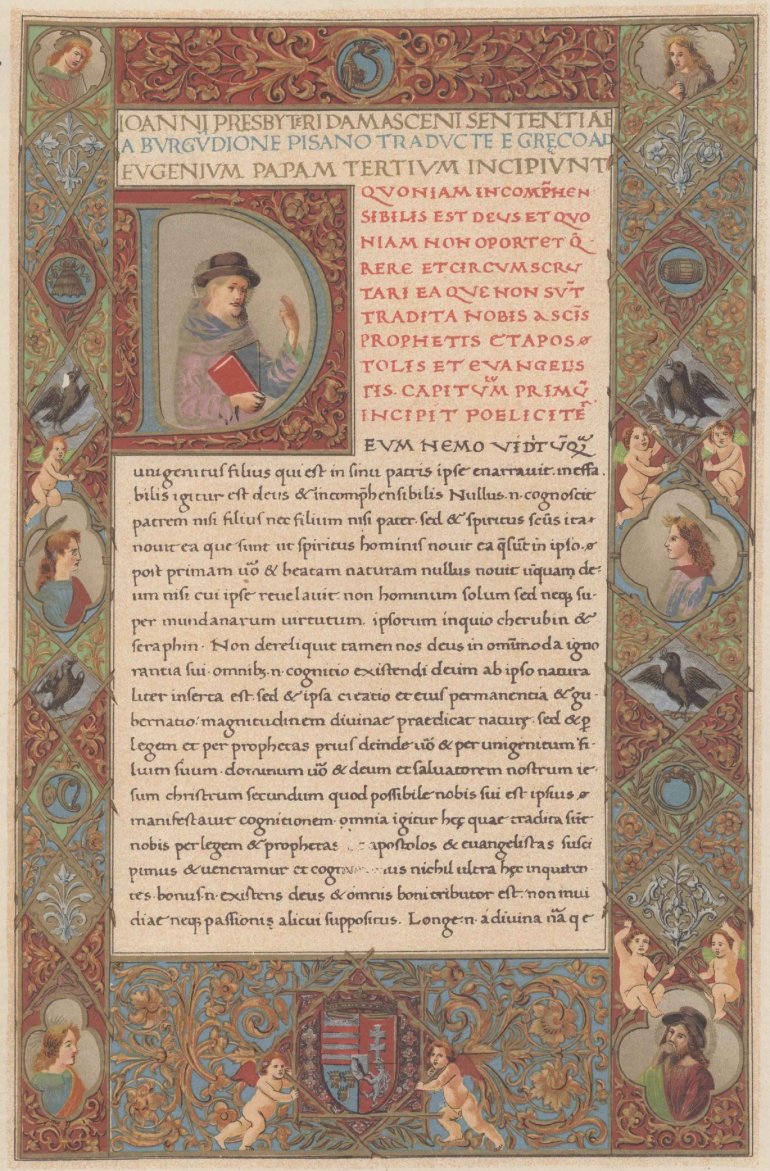 IOANNI PRESBYTERI DAMASCENI SENTENTIAE
A BVRGŪDIONE PISANO TRADVCTE E GRĘCO AD
EVGENIVM PAPAM TERTIVM INCIPIVNT
QVONIAM INCOMP̄HEN
SIBILIS EST DEUS ET QVO
NIAM NON OPORTET Q̄
RERE ET CIRCVMSCRV
TARI EA QVE NON SVT̄
TRADITA NOBIS A SCĪS
PROPHETIS ET APOS
TOLIS ET EVANGELIS
TIS. CAPITVM PRIMŪ
INCIPIT
DEUM NEMO
unigenitus filius qui est in sinu patris ipse enarravit. ineffa
bilis igitur est deus & incomp̄hensibilis Nullus .n. cognoscit
patrem nisi filius nec filium nisi pater. sed & spiritus sc̄us ita
novit ea que sunt ut spiritus hominis novit ea q̄ sūt in ipso.
post primam ūo & beatam naturam nullus novit ūquam de
um nisi cui ipse revelavit. non hominum solum sed neq; su
per mundanarum virtutum. ipsorum inquio cherubin &
seraphin. Non dereliquit tamen nos deus in omīmoda igno
rantia sui. omnib; .n. cognitio existendi deum ab ipso natura
liter inserta est. sed & ipsa creatio et eius permanentia & gu
bernatio. magnitudinem divinae praedicat naturę. sed & p̱
legem et per prophetas prius deinde ūo & per unigenitum fi
lium suum. dominum ūo & deum et salvatorem nostrum ie
sum christum secundum quod possibile nobis sui est ipsius
manifestavit cognitionem. omnia igitur hęc quae tradita sūt
nobis per legem & prophetas apostolos & euangelistas susci
pimus & veneramur et nichil ultra hęc inquiren
tes. bonus .n. existens deus & omnis boni tributor est. non invi
diae neq; passionis alicui suppositus. Longe .n. a divina n̄a q e